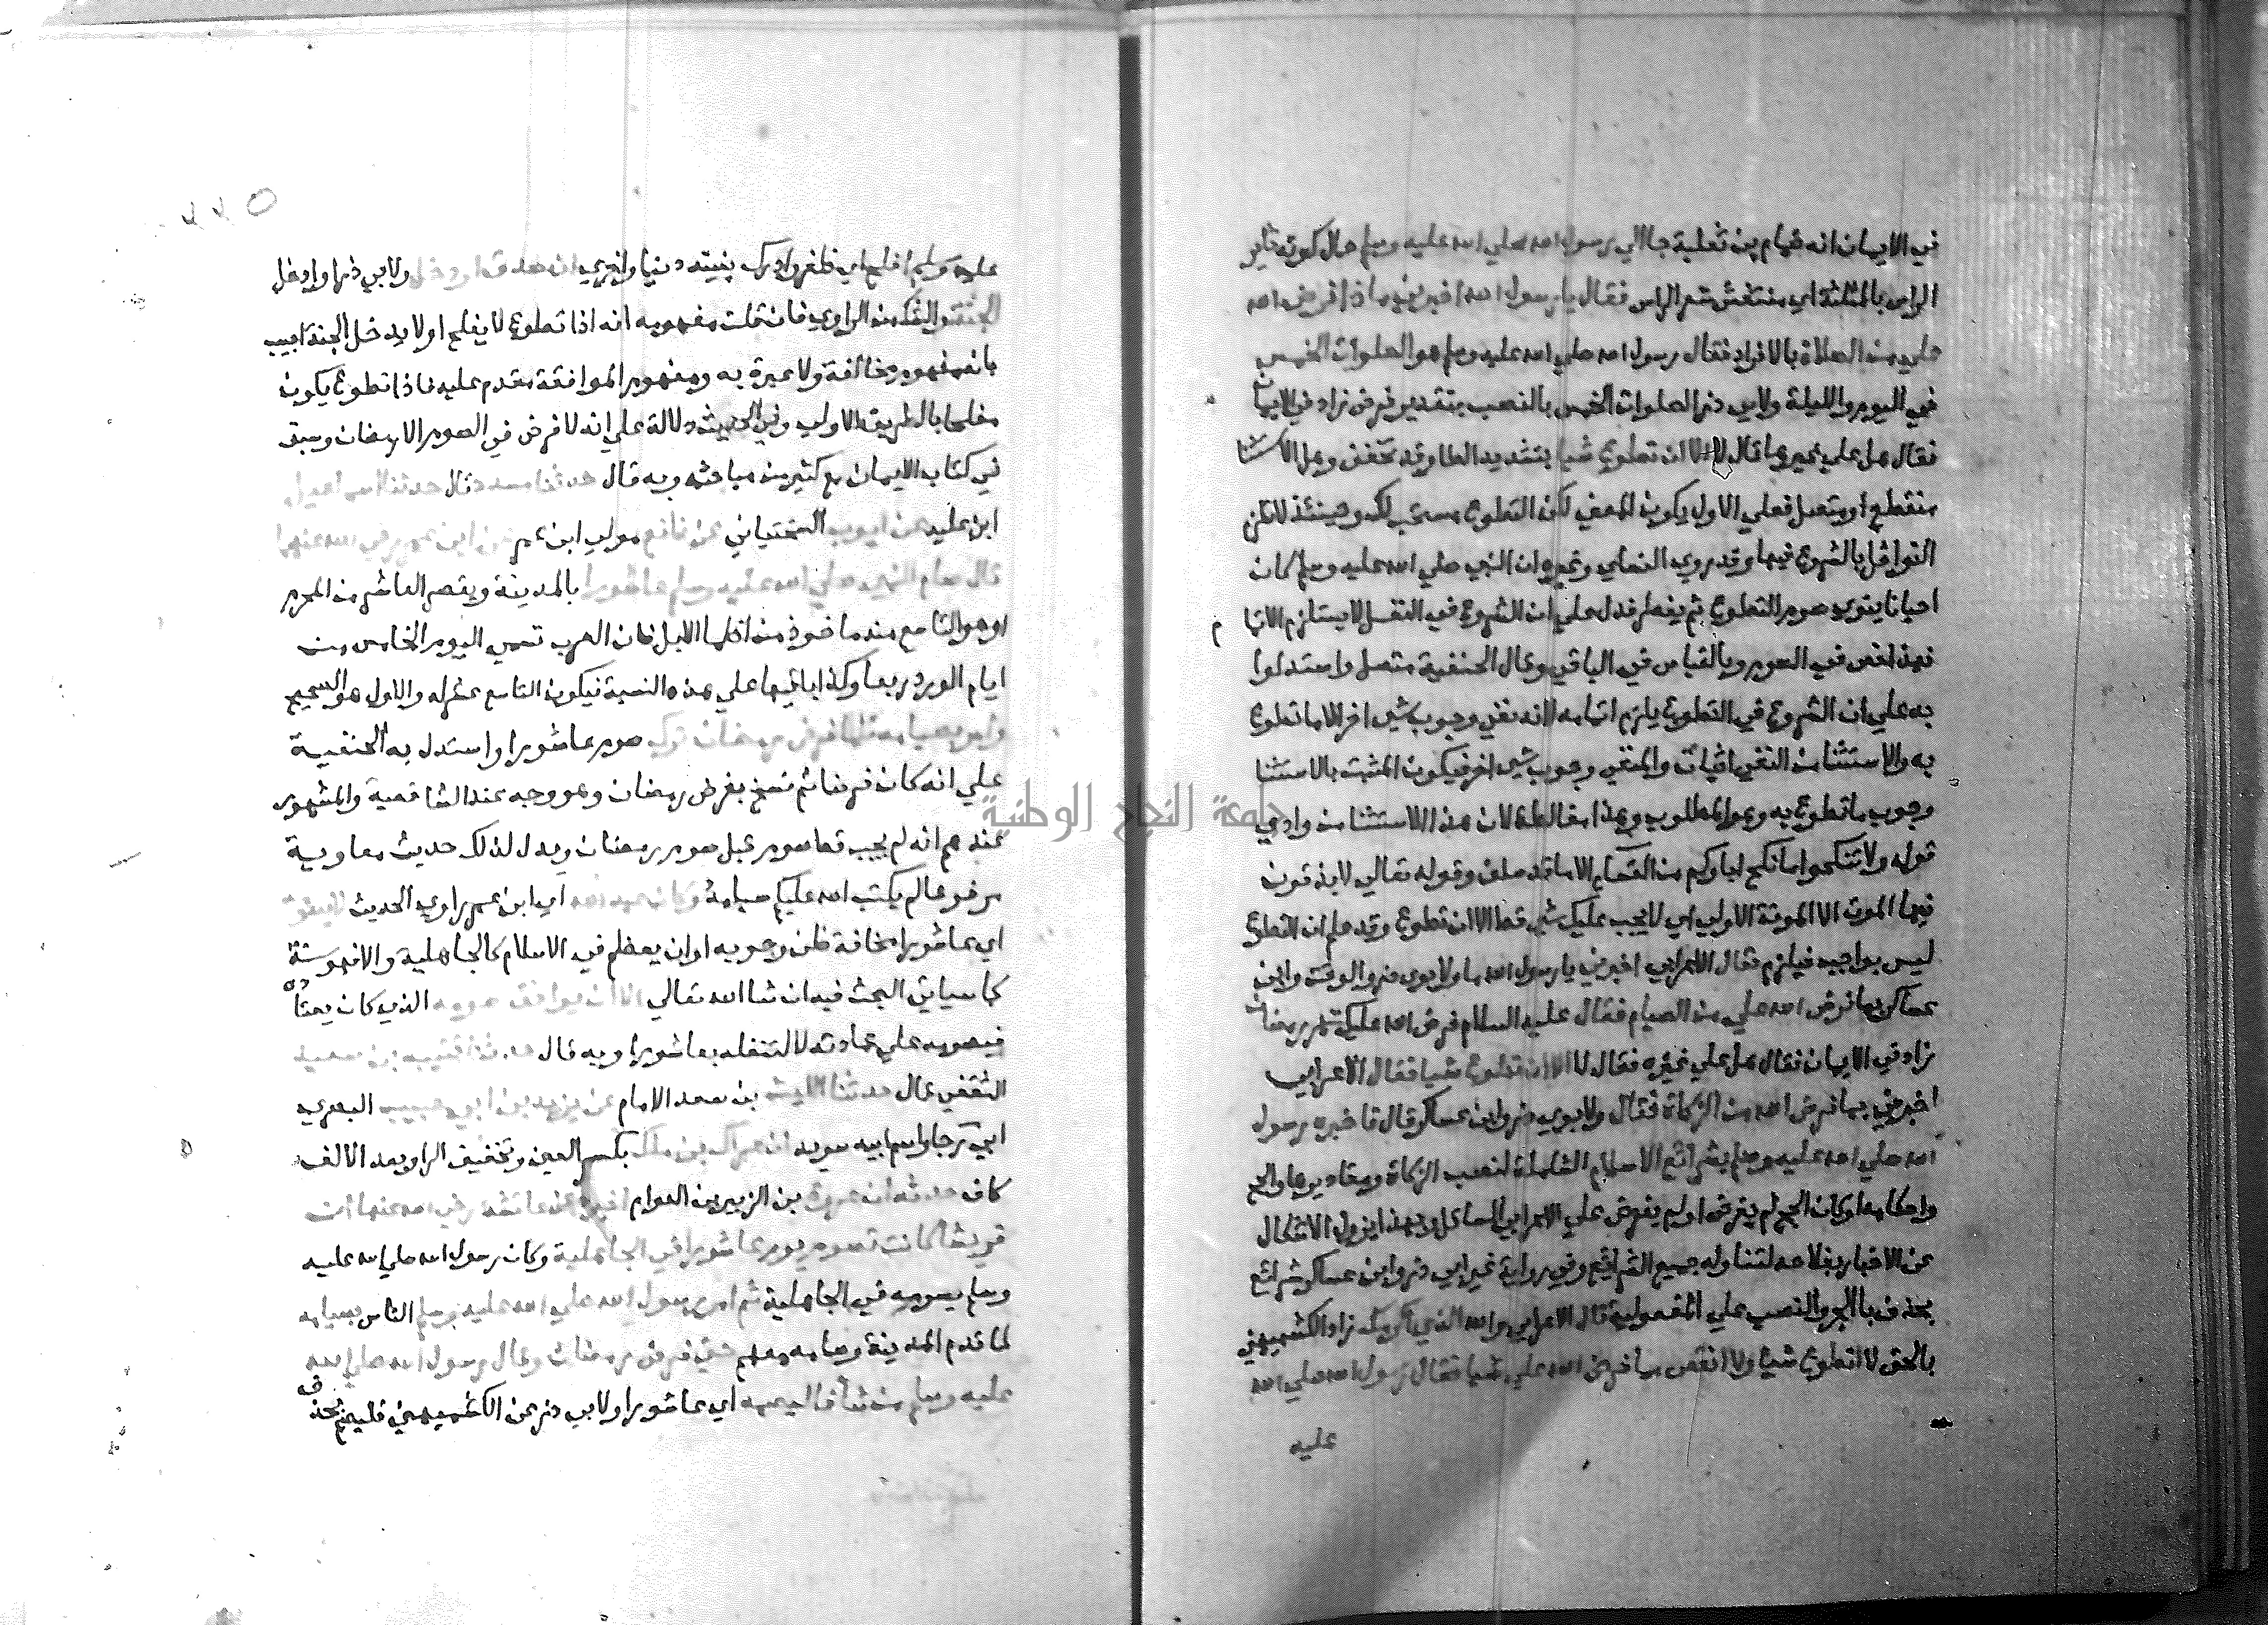 في الايمان انه ضمام بن ثعلبة جا الي رسول الله صلي الله عليه وسلم حال كونه ثاير
الراس بالمثلثة اي منتفش شعر الراس فقال يا رسول الله اخبرني ماذا فرض الله
علي من الصلاة بالافراد فقال رسول الله صلي الله عليه وسلم هو الصلوات الخمس
في اليوم والليلة ولابي ذر الصلوات الخمس بالنصب بتقدير فرض زاد في الايمان
فقال هل علي غيرها قال لا الا ان تطوع شيا بتشديد الطا وقد تخفف وهل الاستثنا
منقطع او متصل فعلي الاول يكون المعني لكن التطوع مستحب لك وحينئذ لا تلزم
النوافل بالشروع فيها وقد روي النساي وغيره ان النبي صلي الله عليه وسلم كان
احيانا ينوي صوم التطوع ثم يفطر فدل علي ان الشروع في النفل لا يستلزم الاتمام
فهذا نص في الصوم وبالقياس في الباقي وقال الحنفية متصل واستدلوا
به علي ان الشروع في التطوع يلزم اتمامه لانه نفي وجوب شي اخر الا ما تطوع
به والاستثنا من النفي اثبات والمنفي وجوب شي اخر فيكون المثبت بالاستثنا
وجوب ما تطوع به وهو المطلوب وهذا مغالطة لان هذا الاستثنا من وادي
قوله ولا تنكحوا ما نكح اباوكم من النساء الا ما قد سلف وقوله تعالي لا يذوقون
فيها الموت الا الموتة الاولي اي لا يجب عليك شي قط الا ان تطوع وقد علم ان التطوع
ليس بواجب فيلزم فقال الاعرابي اخبرني يا رسول الله ما ولابوي ذر والوقت وابن
عساكر بما فرض الله علي من الصيام فقال عليه السلام فرض الله عليك شهر رمضان
زاد في الايمان فقال هل علي غيره فقال لا الا ان تطوع شيا فقال الاعرابي
اخبرني بما فرض الله من الزكاة فقال ولابوي ذر وابن عساكر قال فاخبره رسول
الله صلي الله عليه وسلم بشرائع الاسلام الشاملة لنصب الزكاة ومقاديرها والحج
واحكامه او كان الحج لم يفرض او لم يفرض علي الاعرابي السائل وبهذا يزول الاشكال
عن الاخبار بفلاحه لتناوله جميع الشرائع وفي رواية غير ابي ذر وابن عساكر شرائع
بحذف با الجر والنصب علي المفعولية قال الاعرابي والله الذي اكرمك زاد الكشميهني
بالحق لا اتطوع شيا ولا انقص مما فرض الله علي شيا فقال رسول الله صلي الله
عليه
٢٢٥
عليه وسلم افلح اي ظفر وادرك بغيته دنيا واخري ان صدق او دخل ولابي ذر او ادخل
الجنة والشك من الراوي فان قلت مفهومه انه اذا تطوع لا يفلح او لا يدخل الجنة اجيب
بانه مفهوم مخالفة ولا عبرة به ومفهوم الموافقة مقدم عليه فاذا تطوع يكون
مفلحا بالطريق الاولي وفي الحديث دلالة علي انه لا فرض في الصوم الا رمضان وسبق
في كتاب الايمان مع كثير من مباحثه وبه قال حدثنا مسدد قال حدثنا اسماعيل
ابن علية عن ايوب السختياني عن نافع مولي ابن عمر عن ابن عمر رضي الله عنهما
قال صام النبي صلي الله عليه وسلم عاشورا بالمدينة ويقصر العاشر من المحرم
او هو التاسع منه ماخوذ من اظما الابل فان العرب تسمي اليوم الخامس من
ايام الورد ربعا وكذا باقيها علي هذه النسبة فيكون التاسع عشرا والاول هو الصحيح
وامر بصيامه فلما فرض رمضان ترك صوم عاشورا واستدل به الحنفية
علي انه كان فرضا ثم نسخ بفرض رمضان وهو وجه عند الشافعية والمشهور
عندهم انه لم يجب قط صوم قبل صوم رمضان ويدل لذلك حديث معاوية
مرفوعا لم يكتب الله عليكم صيامه وكان عبد الله اي ابن عمر راوي الحديث لا يصومه
اي عاشورا مخافة ظن وجوبه او ان يعظم في الاسلام كالجاهلية والا فهو سنة
كما سياتي البحث فيه ان شا الله تعالي الا ان يوافق صومه الذي كان يعتاده
فيصومه علي عادته لا لتنفله بعاشورا وبه قال حدثنا قتيبه بن سعيد
الثقفي قال حدثنا الليث بن سعد الامام عن يزيد بن ابي حبيب البصري
ابي رجا واسم ابيه سويد ان عراك بن ملك بكسر العين وتخفيف الرا وبعد الالف
كاف حدثه ان عروة بن الزبير بن العوام اخبره عن عائشه رضي الله عنها ان
قريشا كانت تصوم يوم عاشورا في الجاهلية وكان رسول الله صلي الله عليه
وسلم يصومه في الجاهلية ثم امر رسول الله صلي الله عليه وسلم الناس بصيامه
لما قدم المدينة وصامه معهم حتي فرض رمضان وقال رسول الله صلي الله
عليه وسلم من شا فاليصمه اي عاشورا ولابي ذر عن الكشميهني فليصم بحذف
جامعة النجاح الوطنية